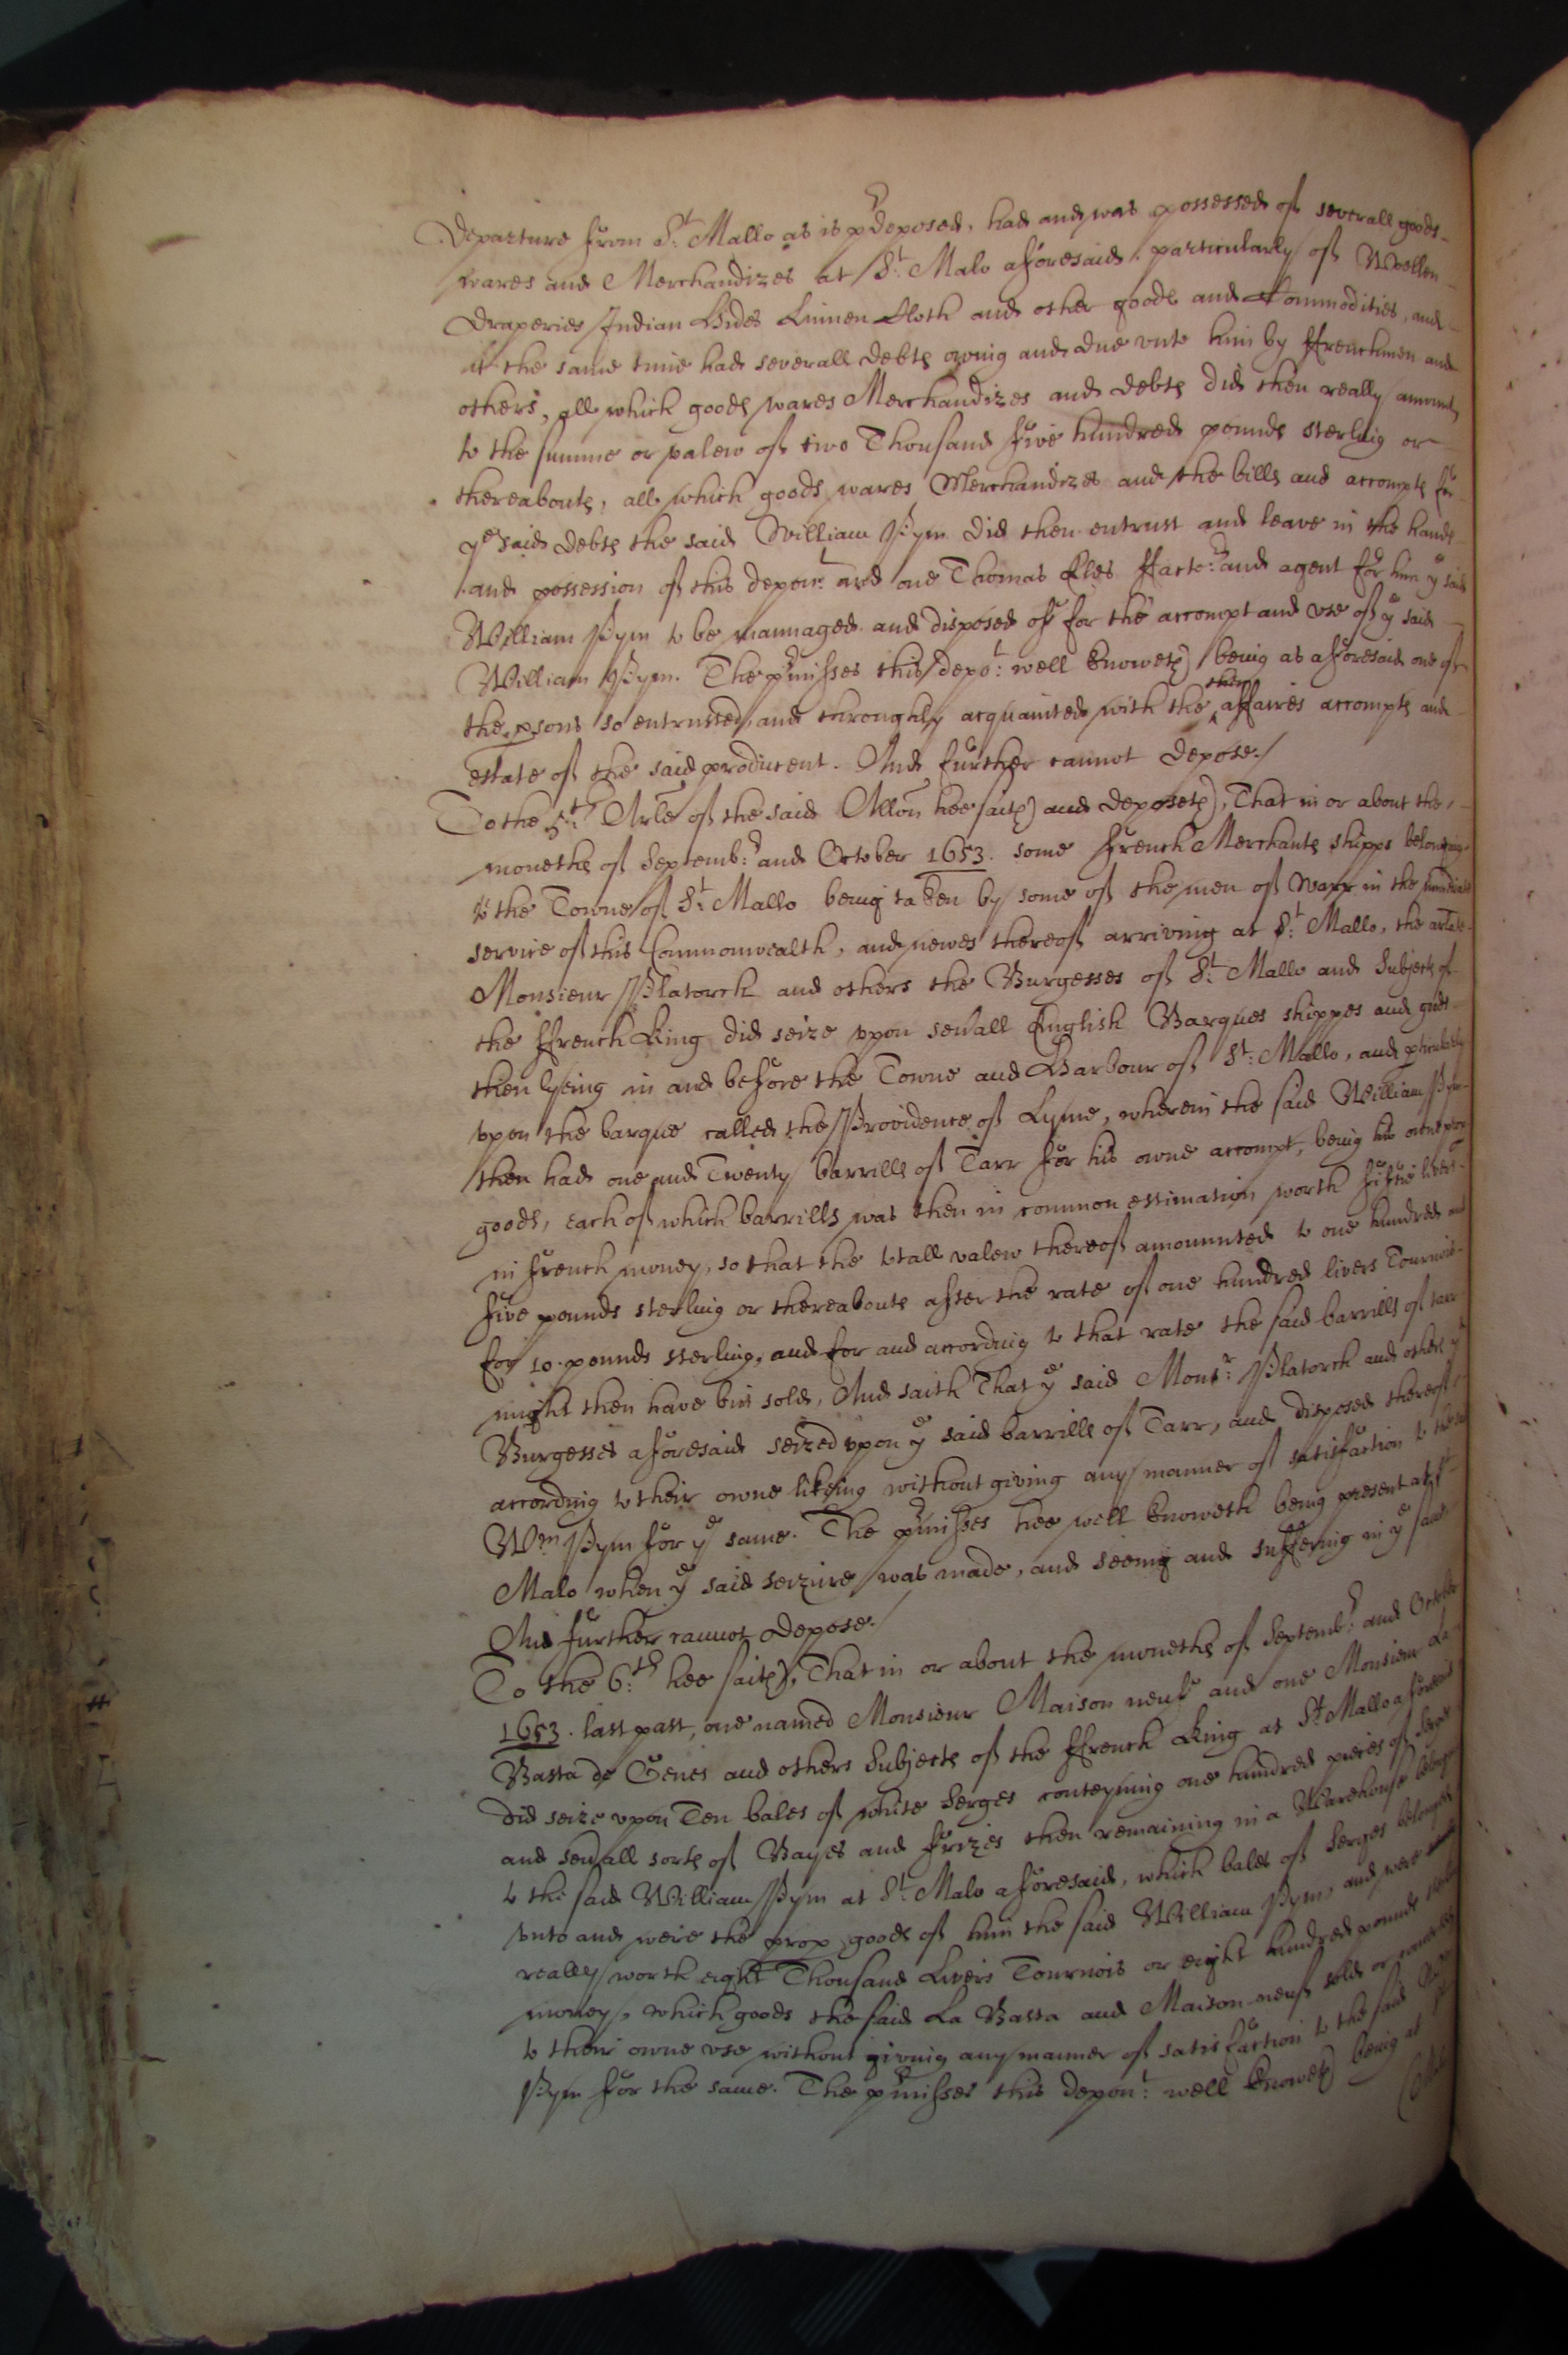 departure from St. Mallo as is prdeposed, had and was possessed of severall goods
wares and Merchandizes at St. Malo aforesaid particularly of Wollen
draperies Indian Hides Linnen Cloth and other goods and Commodities, and
at the same time had severall debts owing and due vnto him by Ffrenchmen and
others, all which goods wares Merchandizes and debts did then really amount
to the summe or valew of two Thousand five hundred pounds sterling or
thereabouts, all which goods wares Merchandizes and the bills and accompts for
ye said debts the said William Pym did then entrust and leave in the hands
and possession of this depont. and one Thomas Eles Ffactor. and agent for him ye said
William Pym to be mannaged and disposed of for the accompt and vse of ye said
William Pym. The prmisses this depot: well knoweth being as aforesaid one of
the psons so entrusted and throughly acquainted with the then affaires accompts and
estate of the said producent. And further cannot depose./
To the 5th. Arle of the said Allon hee saith and deposeth, That in or about the
moneths of Septembr: and October 1653. some French Merchants shipps belonging
to the Towne of St. Mallo being taken by some of the men of Warr in the imediate
service of this Commonwealth, and newes thereof arriving at St. Mallo, the arlate
Monsieur Platorck and others the Burgesses of St. Mallo and Subjects of
the Ffrench King did seize vpon sevrall English Barques shippes and goods
then lyeing in and before the Towne and Harbour of St: Mallo, and pticularly
vpon the barque called the Providence of Lyme, wherein the said William Pym
then had one and Twenty barrills of Tarr for his owne accompt, being his owne prop
goods, each of which barrills was then in common estimation worth fiftie livers
in French money, so that the totall valew thereof amounted to one hundred and
five pounds sterling or thereabouts after the rate of one hundred livers Tournois
for 10. pounds sterling, and for and according to that rate the said barrills of tarr
might then have bin sold, And saith That ye said Monsr: Platorck and others ye
Burgesses aforesaid seized vpon ye said barrills of Tarr, and disposed thereof
according to their owne likeing without giving any manner of satisfaction to the said
Wm Pym for ye same. The prmisses hee well knoweth being present at St
Malo when ye said seizure was made, and seeing and suffering in ye same
And further cannot depose./
To the 6:th hee saith, That in or about the moneths of Septembr: and October
1653. last past, one named Monsieur Maison neufe and one Monsieur La
Bassa de Genes and others Subjects of the Ffrench King at St Mallo aforesaid
did seize vpon Ten bales of white Serges conteyning one hundred pieces of Serge
and sevrall sorts of Bayes and Frizes then remaining in a Warehouse belonging
to the said William Pym at St. Malo aforesaid, which bales of Serges belonged
vnto and were the prop goods of him the said William Pym, and were
really worth eight Thousand Livers Tournois or eight hundred pounds
money, which goods the said La Bassa and Maison-neuf sold or
to their owne vse without giving any manner of satisfaction to the said
Pym for the same. The prmisses this depont: well knoweth being at